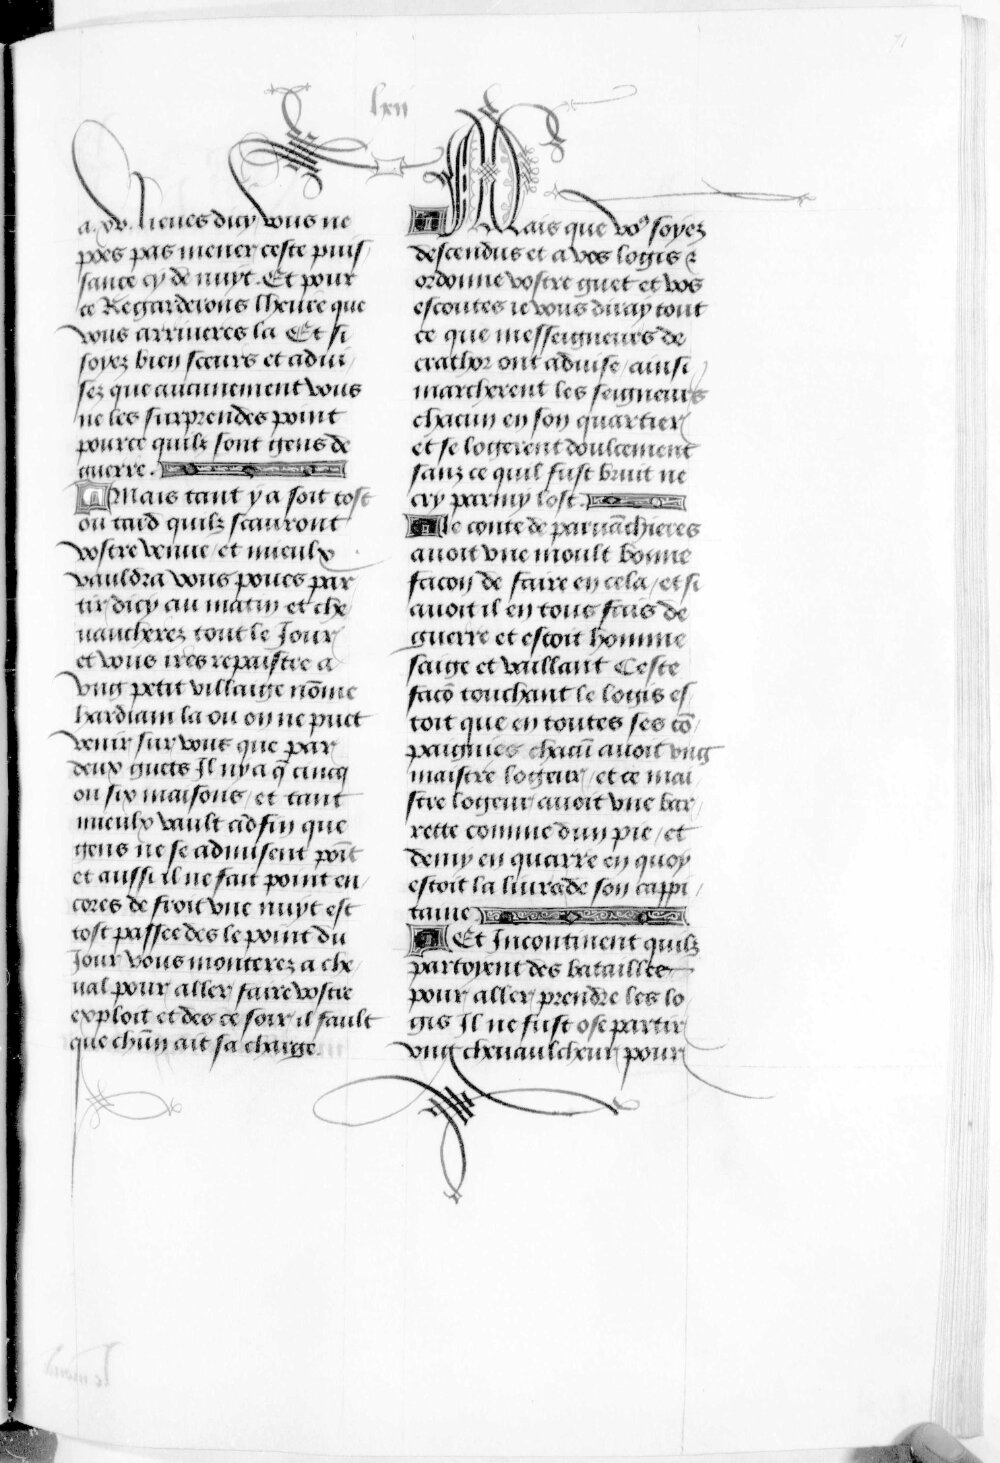 lxii
71
a .xv. lieues dicy vous ne
poes pas mener ceste puis
sance cy de nuyt. Et pour
ce Regarderons lheure que
vous arriueres la Et si
soyez bien sceurs et adui
sez que aucunement vous
ne les surprendes point
pource quilz sont gens de
guerre.
Mais tant y a soit tost
ou tard quilz scauront
vostre venue / et mieulx
vauldra vous poues par
tir dicy au matin et che
uaucherez tout le Jour
et vous ires repaistre a
vng petit villaige nōme
hardiam la ou on ne puet
venir sur vous que par
deux guets Il ny a q̄ cincq
ou six maisons / et tant
mieulx vault adfin que
gens ne se aduisent poīt
et aussi il ne fait point en /
cores de froit vne nuyt est
tost passee des le point du
Jour vous monterez a che
ual pour aller faire vostre
exploit et des ce soir il fault
que chūn ait sa charge.
Mais que voꝰ soyez
descendus et a vos logis ⁊
ordonne vostre guet et vos
escoutes ie vous diray tout
ce que messeigneurs de
crathor ont aduise / ainsi
marcherent les seigneurs
chacun en son quartier
et se logerent doulcement
sanz ce quil fust bruit ne
cry parmy lost.
le conte de paruāchieres
auoit vne moult bonne
facon de faire en cela / et si
auoit il en tous fais de
guerre et estoit homme
saige et vaillant Ceste
facō touchant le logis es
toit que en toutes ses cō /
paignies chacū auoit vng
maistre logeur / et ce mai
stre logeur auoit vne bar /
rette comme dun pie / et
demy en quarre en quoy
estoit la liuree de son cappi /
taine
Et Incontinent quilz
partoyent des batailles
pour aller prendre les lo
gis Il ne fust ose partir
vng cheuaulcheur pour